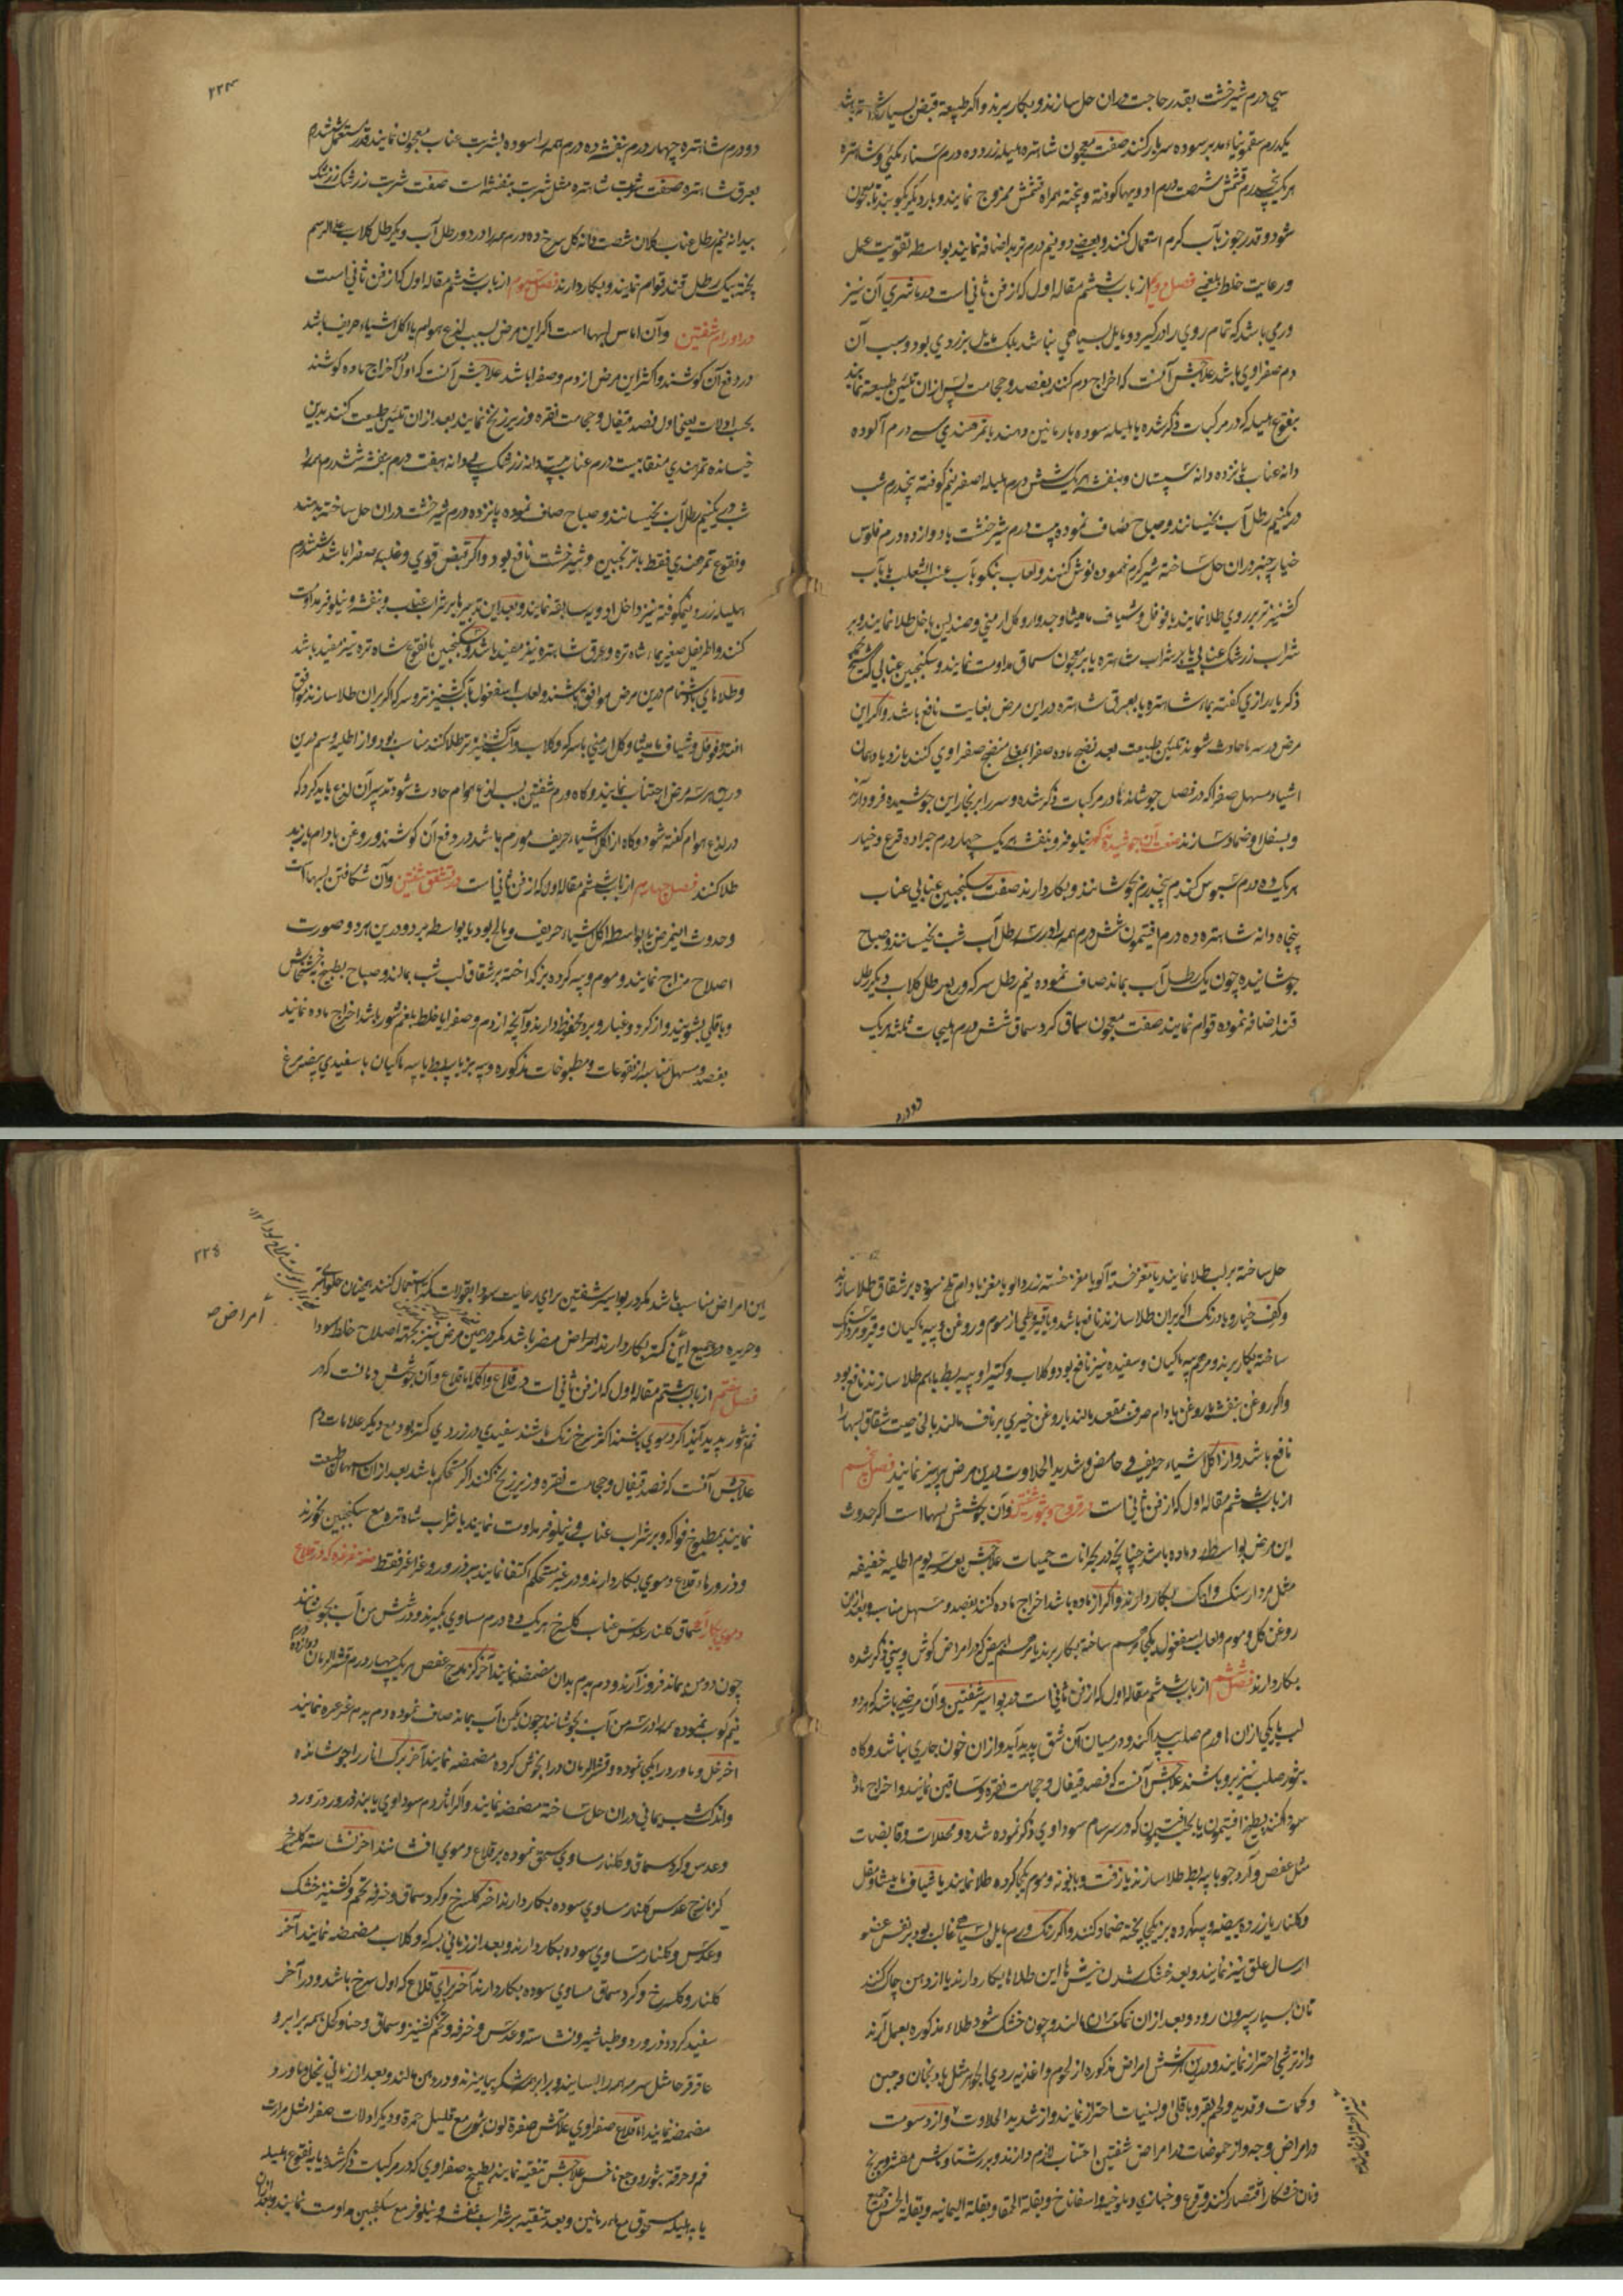 سي درم شيرخشت بقدر حاجت دران حل سازند و بكار برند و اكر طبيعة قبض بسيار داشته باشد
يكدرم سقمونياء مدبر سوده سربار كنند صفت معجون شاهتره هليله زرد ده درم سناء مكي و شاهتره
هريك پنجدرم قشمش شصت درم ادويها كوفته و پخته همراه قشمش ممزوج نمايند و بار ديكر بكوبند تا معجون
شود و قدر جوز بآب كرم استعمال كنند و بعضي دو نيم درم تربد اضافه نمايند بواسطه تقويت عمل
و رعايت خلط بلغمي فصل دوم از باب ششم مقاله اول كه از فن ثاني است در باشري آن نيز
ورمي باشد كه تمام روي را در كيرد و مايل بسياهي نباشد بلكه مايل بزردي بود و سبب آن
دم صفراوي باشد علاجش آنست كه اخراج دم كنند بفصد و حجامت پس ازان تليين طبيعة نمايند
بنقوع هليله كه در مركبات ذكر شده يا هليله سوده بارمانين دهند يا تمر هندي سي درم آلوده
دانه عناب پانزده دانه سپستان و بنفشه هريك شش درم هليله اصفر نيم كوفته پنجدرم شب
در يكنيم رطل آب بخيسانند و صباح صاف نموده بيست درم شيرخشت با دوازده درم فلوس
خيارچنبر دران حل ساخته شير كرم نموده نوش كنند و لعاب بنكو بآب عنب الثعلب يا بآب
كشنيز تر بر روي طلا نمايند يا فوفل و شياف ماميثا و جدوار و كل ارمني و صندلين با خل طلا نمايند و بر
شراب زرشك عنابي يا بر شراب شاهتره يا بر معجون سماق مداومت نمايند و سكنجبين عنابي كه شيخ محمد
ذكريا رازي كفته بماء شاهتره يا بعرق شاهتره دراين مرض بغايت نافع باشد و اكر اين
مرض در سه ماه حادث شود تليين طبيعت بعد نضج ماده صفرا بمنضج صفراوي كنند بازدياد همان
اشياء مسهل صفرا كه در فصل جوشانده ها در مركبات ذكر شده و سر را بر بخار اين جوشيده فرود آرند
و بسفل او ضماد سازند صفت آن جوشيده كه نيلوفر و بنفشه هريك چهار درم جراده قرع و خيار
هريك ده درم سبوس كندم پنجدرم بجوشانند و بكار دارند صفت سكنجبين عنابي عناب
پنجاه دانه شاهتره ده درم افتيمون شش درم همه را در سه رطل آب شب بخيسانند و صباح
جوشانيده چون يك رطل آب بماند صاف نموده نيم رطل سركه و ربع رطل كلاب و يكرطل
قند اضافه نموده قوام نمايند صفت معجون سماق كرد سماق شش درم هليجات ثلثه هريك
دو درم
٢٢٣
دو درم شاهتره چهار درم بنفشه ده درم همه را سوده بشربت عناب معجون نمايند قدر مستعمل شش درم
بعرق شاهتره صفت شربت شاهتره مثل شربت بنفشه است صفت شربت زرشك زرشك
بيدانه نيم رطل عناب كلان شصت دانه كل سرخ ده درم همه را در دو رطل آب و يكرطل كلاب علي الرسم
پخته بيك رطل قند قوام نمايند و بكار دارند فصل سوم از باب ششم مقاله اول كه از فن ثاني است
در اورام شفتين وآن اماس لبها است اكر اين مرض بسبب لذع هوام يا اكل اشياء حريف باشد
در دفع آن كوشند و اكثر اين مرض از دم و صفرا باشد علاجش آنست كه اول اخراج ماده كوشند
بحسب اولات يعني اول فصد قيفال و حجامت نقره و زير زنخ نمايند بعد ازان تليين طبيعت كنند بدين
خيسانده تمر هندي منقا بيست درم عناب بيست دانه زرشك بي دانه هفت درم بنفشه شش درم همه را
شب در يكنيم رطل آب بخيسانند و صباح صاف نموده پانزده درم شيرخشت دران حل ساخته بدهند
و نقوع تمر هندي فقط با ترنجبين و شيرخشت نافع بود و اكر قبض قوي و غلبه صفرا باشد شش درم
هليله زرد نيمكوفته نيز داخل ادويه سابقه نمايند و بعد اين تدبيرها بر شراب عناب و بنفشه و نيلوفر مداومت
كنند و اطريفل صغير بماء شاه تره و عرق شاهتره نيز مفيد باشد و سكنجبين با نقوع شاه تره نيز مفيد باشد
و طلاهاي بادشنام درين مرض موافق باشند و لعاب اسفغول بآب كشنيز تر و سركه اكر بران طلا سازند موافق
افتد و فوفل و شياف ماميثا و كل ارمني با سركه و كلاب و آب كشنيز تر طلا كنند مناسب بود و از اطليه وسم درين
در هر سه مرض اجتناب نمايند و كاه ورم شفتين بسبب لذع هوام حادث شود تدبير آن لذع بايد كرد كه
در لذع هوام كفته شود و كاه از اكل اشياء حريف مورم باشد در رفع آن كوشند و روغن بادام يا زبد
طلا كنند فصل چهارم از باب ششم مقاله اول كه از فن ثاني است در تشقق شفتين وآن شكافتن لبها است
و حدوث اينمرض يا بواسطه اكل اشياء حريف و مالح بود يا بواسطه برد و درين هر دو صورت
اصلاح مزاج نمايند و موم و پيه كرده بز كداخته بر شقاق لب شب بمالند و صباح بطبيخ خشخاش
و باقلي بشويند و از كرد و غبار و برد محفوظ دارند و آنچه از دم و صفرا يا خلط بلغم شور باشد اخراج ماده نمايند
بفصد و مسهل مناسبه از نقوعات و مطبوخات مذكوره و پيه بز يا پيه بط يا پيه ماكيان با سفيدي بيضه مرغ
حل ساخته بر لب طلا نمايند يا مغز خسته آلو يا مغز خسته زردالو يا مغز بادام تلخ سوده بر شقاق طلا سازند
و كف خيار و بادرنك اكر بران طلا سازند نافع باشد و باقيروطي از موم و روغن و پيه ماكيان
ساخته بكار برند و مرهم پيه ماكيان و سفيده نيز نافع بود و كلاب و كتيرا و پيه بط باهم طلا سازند نافع بود
و اكر روغن بنفشه يا روغن بادام صرف مقعد بمالند يا روغن خيري بر ناف مالند بالخاصيت شقاق لبها را
نافع باشد و از اكل اشياء حريف و حامض و شديد الحلاوت درين مرض پرهيز نمايند فصل پنجم
از باب ششم مقاله اول كه از فن ثاني است در قروح و بثور شفتين وآن جوشش لبها است اكر حدوث
اين مرض بواسطه ماده باشد چنانچه در بحرانات حميات علاجش بعد سه يوم اطليه خفيفه
مثل مردارسنك و اهك بكار دارند و اكر از ماده باشد اخراج ماده كنند بفصد و مسهل مناسب و بعد ازان
روغن كل و موم و لعاب اسفغول يكجا مرهم ساخته بكار برند يا مرهم ابيض كه در امراض كوش و بيني ذكر شده
بكار دارند فصل ششم از باب ششم مقاله اول كه از فن ثاني است در بواسير شفتين وآن مرضي باشد كه هر دو
لب يا يكي ازان ها ورم صلب پيدا كند و در ميان آن شق پديد آيد و ازان خون جاري نباشد و كاه
بثور صلب نيز برو باشند علاجش آنست كه فصد قيفال و حجامت نقره و ساقين نمايند و اخراج ماده
سودا كنند بطبيخ افتيمون يا بحب افتيمون كه در سرسام سوداوي ذكر نموده شده و محللات و قابضات
مثل عفص و آرد جو با پيه بط طلا سازند يا زفت و بابونه و موم يكجا كرده طلا نمايند يا شياف ماميثا و مقل
و كلنار با زرده بيضه و پيه كرده بز يكجا پخته ضماد كنند و اكر رنك ورم مايل بسياهي غالب بود بر نفس عضو
ارسال علق نيز نمايند و بعد خشك شدن ريش ها اين طلاها بكار دارند يا ازو هن چاك كنند
تا ان بسيار بيرون رود و بعد ازان نمك بران مالند و چون خشك شود طلاء مذكوره بعمل آرند
و از ترشي احتراز نمايند و درين هر شش امراض مذكوره از لحوم و اغذيه ردي الجوهر مثل بادنجان و جبن
و كمات و قديد و لحم بقر و باقلي و لبنيات احتراز نمايند و از شديد الحلاوت و از دسومت
در امراض وجه و از حموضات در امراض شفتين اجتناب لازم دارند و بر رشتا و ماش مقشر و برنج
و نان خشكار اقتصار كنند و قرع و خبازي و ملوخيه و اسفاناخ و بقلة الحمقا و بقلة اليمانيه و بقله الخس جميع
٢٢٤
امراض صه
اين امراض مناسب باشد مكر در بواسير شفتين براي رعايت سودا بقولات كمتر استعمال كنند همچنان حلوا كمتر
و حريره در جميع اين كمتر بكار دارند امراض مضر باشد مكر در همين مرض نيز بجهته اصلاح خلط سودا
فصل هفتم از باب ششم مقاله اول كه از فن ثاني است در قلاع و اكله اما قلاع وآن جوشش دهانست كه در
فم بثور پديد آيد اكر دموي باشند اكثر سرخ رنك باشند سفيدي و زردي كمتر بود مع ديكر علامات دم
علاجش آنست كه فصد قيفال و حجامت نقره و زير زنخ كنند اكر مستحكم باشد بعد ازان اسهال طبيعت
نمايند بمطبوخ فواكه و بر شراب عناب و نيلوفر مداومت نمايند يا شراب شاه تره مع سكنجبين بخورند
و ذرورهاء قلاع دموي بكار دارند و در غير مستحكم اكتفا نمايند بر ذرور و غراغر فقط صفت غرغره كه در قلاع
دموي بكار آيد سماق كلنار عدس عناب كلسرخ هريك ده درم مساوي بكيرند و در شش من آب بجوشانند
چون دو من بماند فرود آرند و دم بدم بدان مضمضه نمايند آخر كزمازج عفص هريك چهار درم قشر الرمان دوازده درم
نيم كوب نموده همه را در سه من آب بجوشانند چون يكمن آب بماند صاف نموده دم بدم غرغره نمايند
اخر خل و ماورد را يكجا نموده و قشر الرمان درا بجوش كرده مضمضه نمايند آخر برك انار را جوشانده
و اندك شب يماني دران حل ساخته مضمضه نمايند و اكر اثار دم سوداوي يابند ذرور ورد
و عدس و كرد سماق و كلنار مساوي سحق نموده بر قلاع دموي افشانند اخر نشاسته كلسرخ
كزمازج عدس كلنار مساوي سوده بكار دارند اخر كلسرخ و كرد سماق و خرفه تخم و كشنيز خشك
و عدس و كلنار مساوي سوده بكار دارند و بعد از زماني بسركه و كلاب مضمضه نمايند آخر
كلنار و كلسرخ و كرد سماق مساوي سوده بكار دارند آخر براي قلاع كه اول سرخ باشد و در آخر
سفيد كردد ذرور ورد و طباشير و نشاسته و عدس و خرفه و تخم كشنيز و سماق و حنا و كحل همه برابر و
عاقرقرحا مثل سرمه همه را بسايند و برابر همه شكر بياميزند و در دهن مالند و بعد از زماني بخل و ماورد
مضمضه نمايند اما قلاع صفراوي علامتش صفرة لون بثور مع قليل حمرة و ديكر اولات صفرا مثل مرارت
فم و حرقة بثور و وجع ناخس علاجش تنقيه نمايند بطبيخ صفراوي كه در مركبات ذكر شده يا به نقوع هليله
يا به هليله مسحوق مع ماء رمانين و بعد تنقيه بر شراب بنفشه و نيلوفر مع سكنجبين مداومت نمايند و بعد ازان